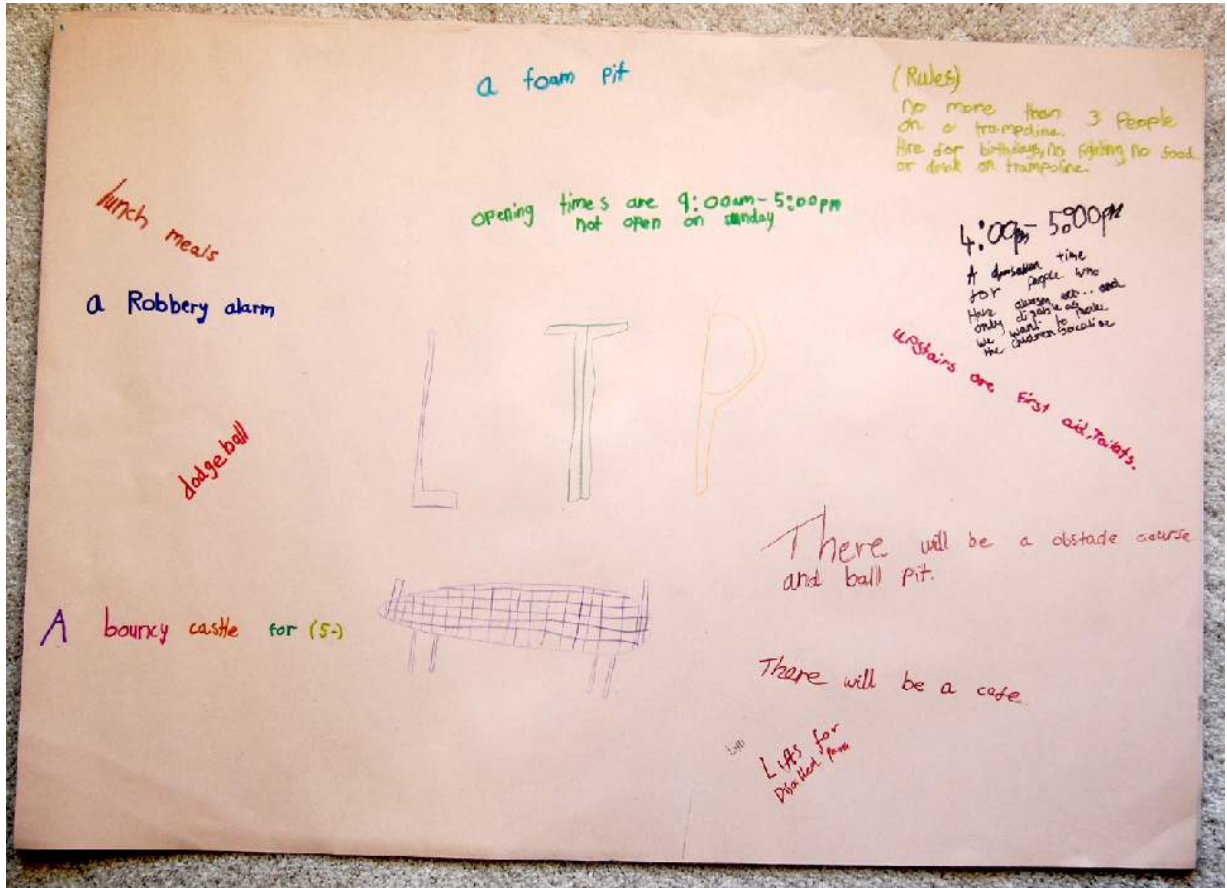 a foam pit
(Rules)
No more than 3 People
on a trampoline.
Hire for birthdays, No fighting no food
or drink on trampoline.
lunch meals
opening times are 9:00am-5:00pm
not open on sunday
4:00pm-5:00pm
A time
for people who
Have and
only disable as
we want to make
the children socalise
a Robbery alarm
L T P
upstairs are first aid, Toilets.
dodgeball
There will be a obstacle course
and ball pit.
A bouncy castle for (5-)
There will be a cafe
Lifts for
Disabled